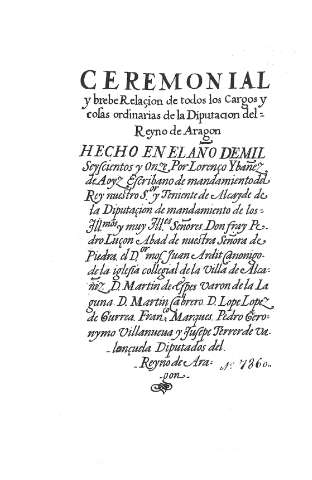 CEREMONIAL
y brebe Relaçion de todos los Cargos y
cosas ordinarias de la Diputacion del-
Reyno de Aragon
HECHO EN EL AÑO DE MIL
Seyscientos y Onze, Por Lorenço Ybañez
de Aoyz Escribano de mandamiento del
Rey nuestro S.r y Teniente de Alcayde de
la Diputaçion de mandamiento de los-
Ill.mos y muy Ill.es Señores Don fray Pe-
dro Luçon Abad de nuestra Señora de
Piedra, el D.or mos. Juan Ardit canonigo
de la iglesia collegial de la Villa de Alca-
ñiz D. Martin de Espes varon de la La
guna D. Martin cabrero D. Lope Lopez
de Gurrea, Fran.co Marques, Pedro Gero-
nymo Villanueua y Jusepe Ferrer de Va-
lençuela Diputados del
Reyno de Ara-
gon-
N.º 736